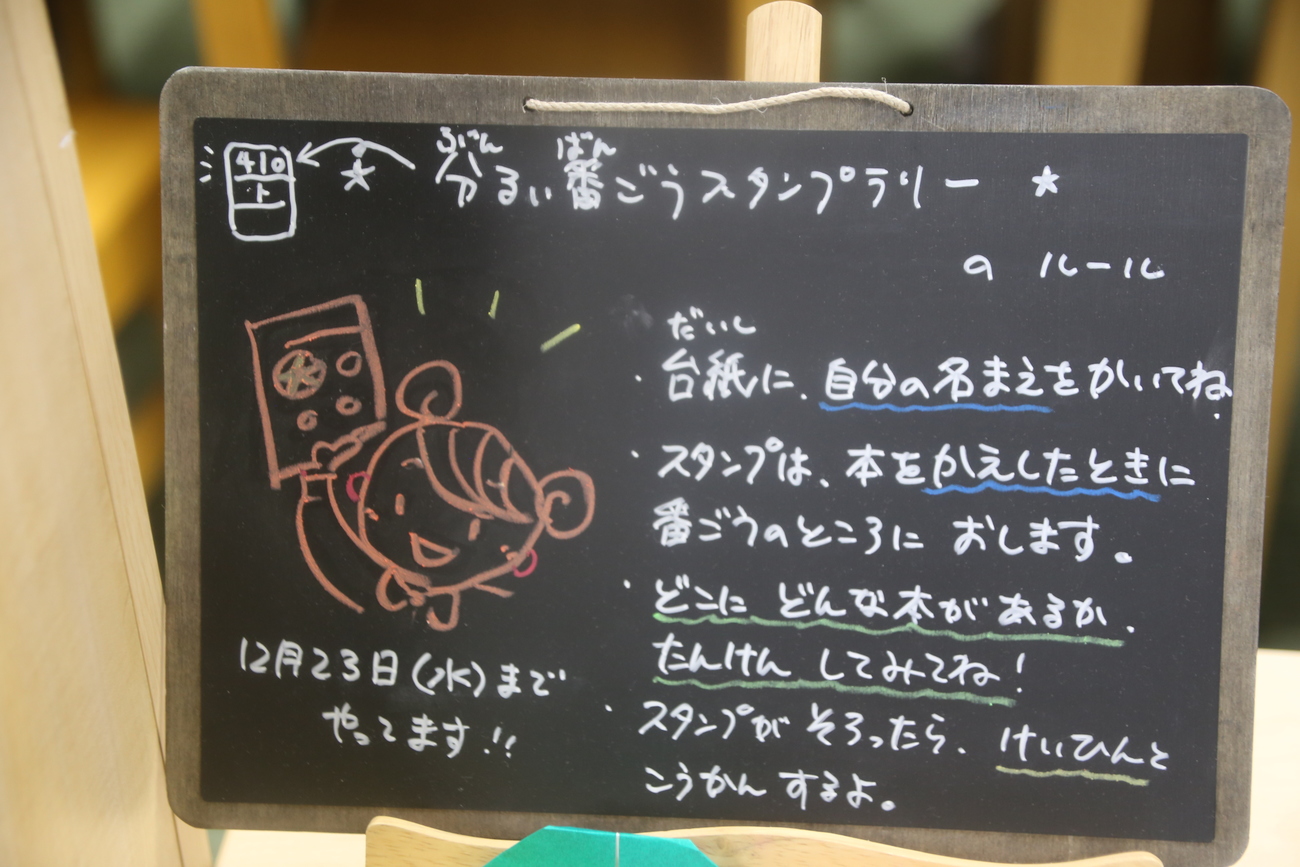 410
ト
ぶん ばん
分るい番ごうスタンプラリー ★
の ルール
だいし
・台紙に、自分の名まえをかいてね。
・スタンプは、本をかえしたときに
番ごうのところに おします。
・どこに どんな本が あるか、
たんけん してみてね！
・スタンプが そろったら、けいひんと
こうかん するよ。
12月23日(水)まで
やってます!!